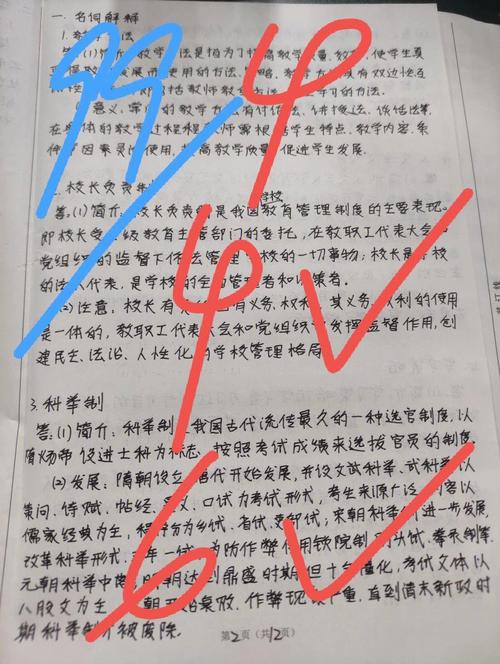 一. 名词解释
1. 教学方法
答:(1)简介:教学方法是指为了提高教学质量、效率,使学生真
发展而使用的方法、策略,教学方法具有双边性
包括教师教的方法 学习的方法.
意义:常见的教学方法有讨论法、讲授法、谈话法等.
在具体的教学过程 教师需根据学生特点、教学内容、条
件等因素灵活使用,提高教学质量,促进学生发展.
2. 校长负责制
学校
答:(1)简介:校长负责制是我国教育管理制度的主要表现.
即校长受上级教育主管部门的委托,在教职工代表大会和
党组织的监督下依法管理学校的一切事物;校长是学校
的法人代表,是学校的全面管理者和决策者.
(2)注意:校长有 义务、权利,其义务、权利的使用
是一体的,教职工代表大会和党组织 发挥监督作用,创
建民主、法治、人性化的学校管理格局
3. 科举制
答:(1)简介:科举制是我国古代流传最久的一种选官制度,以
隋炀帝设进士科为标志,按照考试成绩来选拔官员的制度.
(2)发展:隋朝设立,唐代开始发展,并设文试科举、武科举,以
策问、诗赋、帖经、墨义、口试为考试形式,考生来源广泛,内容以
儒家经典为主,程序分为乡试、省试、 试;宋朝科举 进一步发展,
改革科举形式,三年一试,为防作弊使用锁院制、 试、誊录制等.
元朝科举中 ;明朝达到鼎盛时期但十分僵化,考试文体以
八股文为主 朝开始衰败,作弊现象严重,直到清末新政时
期科举制 被废除.
第2页(共12页)
99
4
4
6